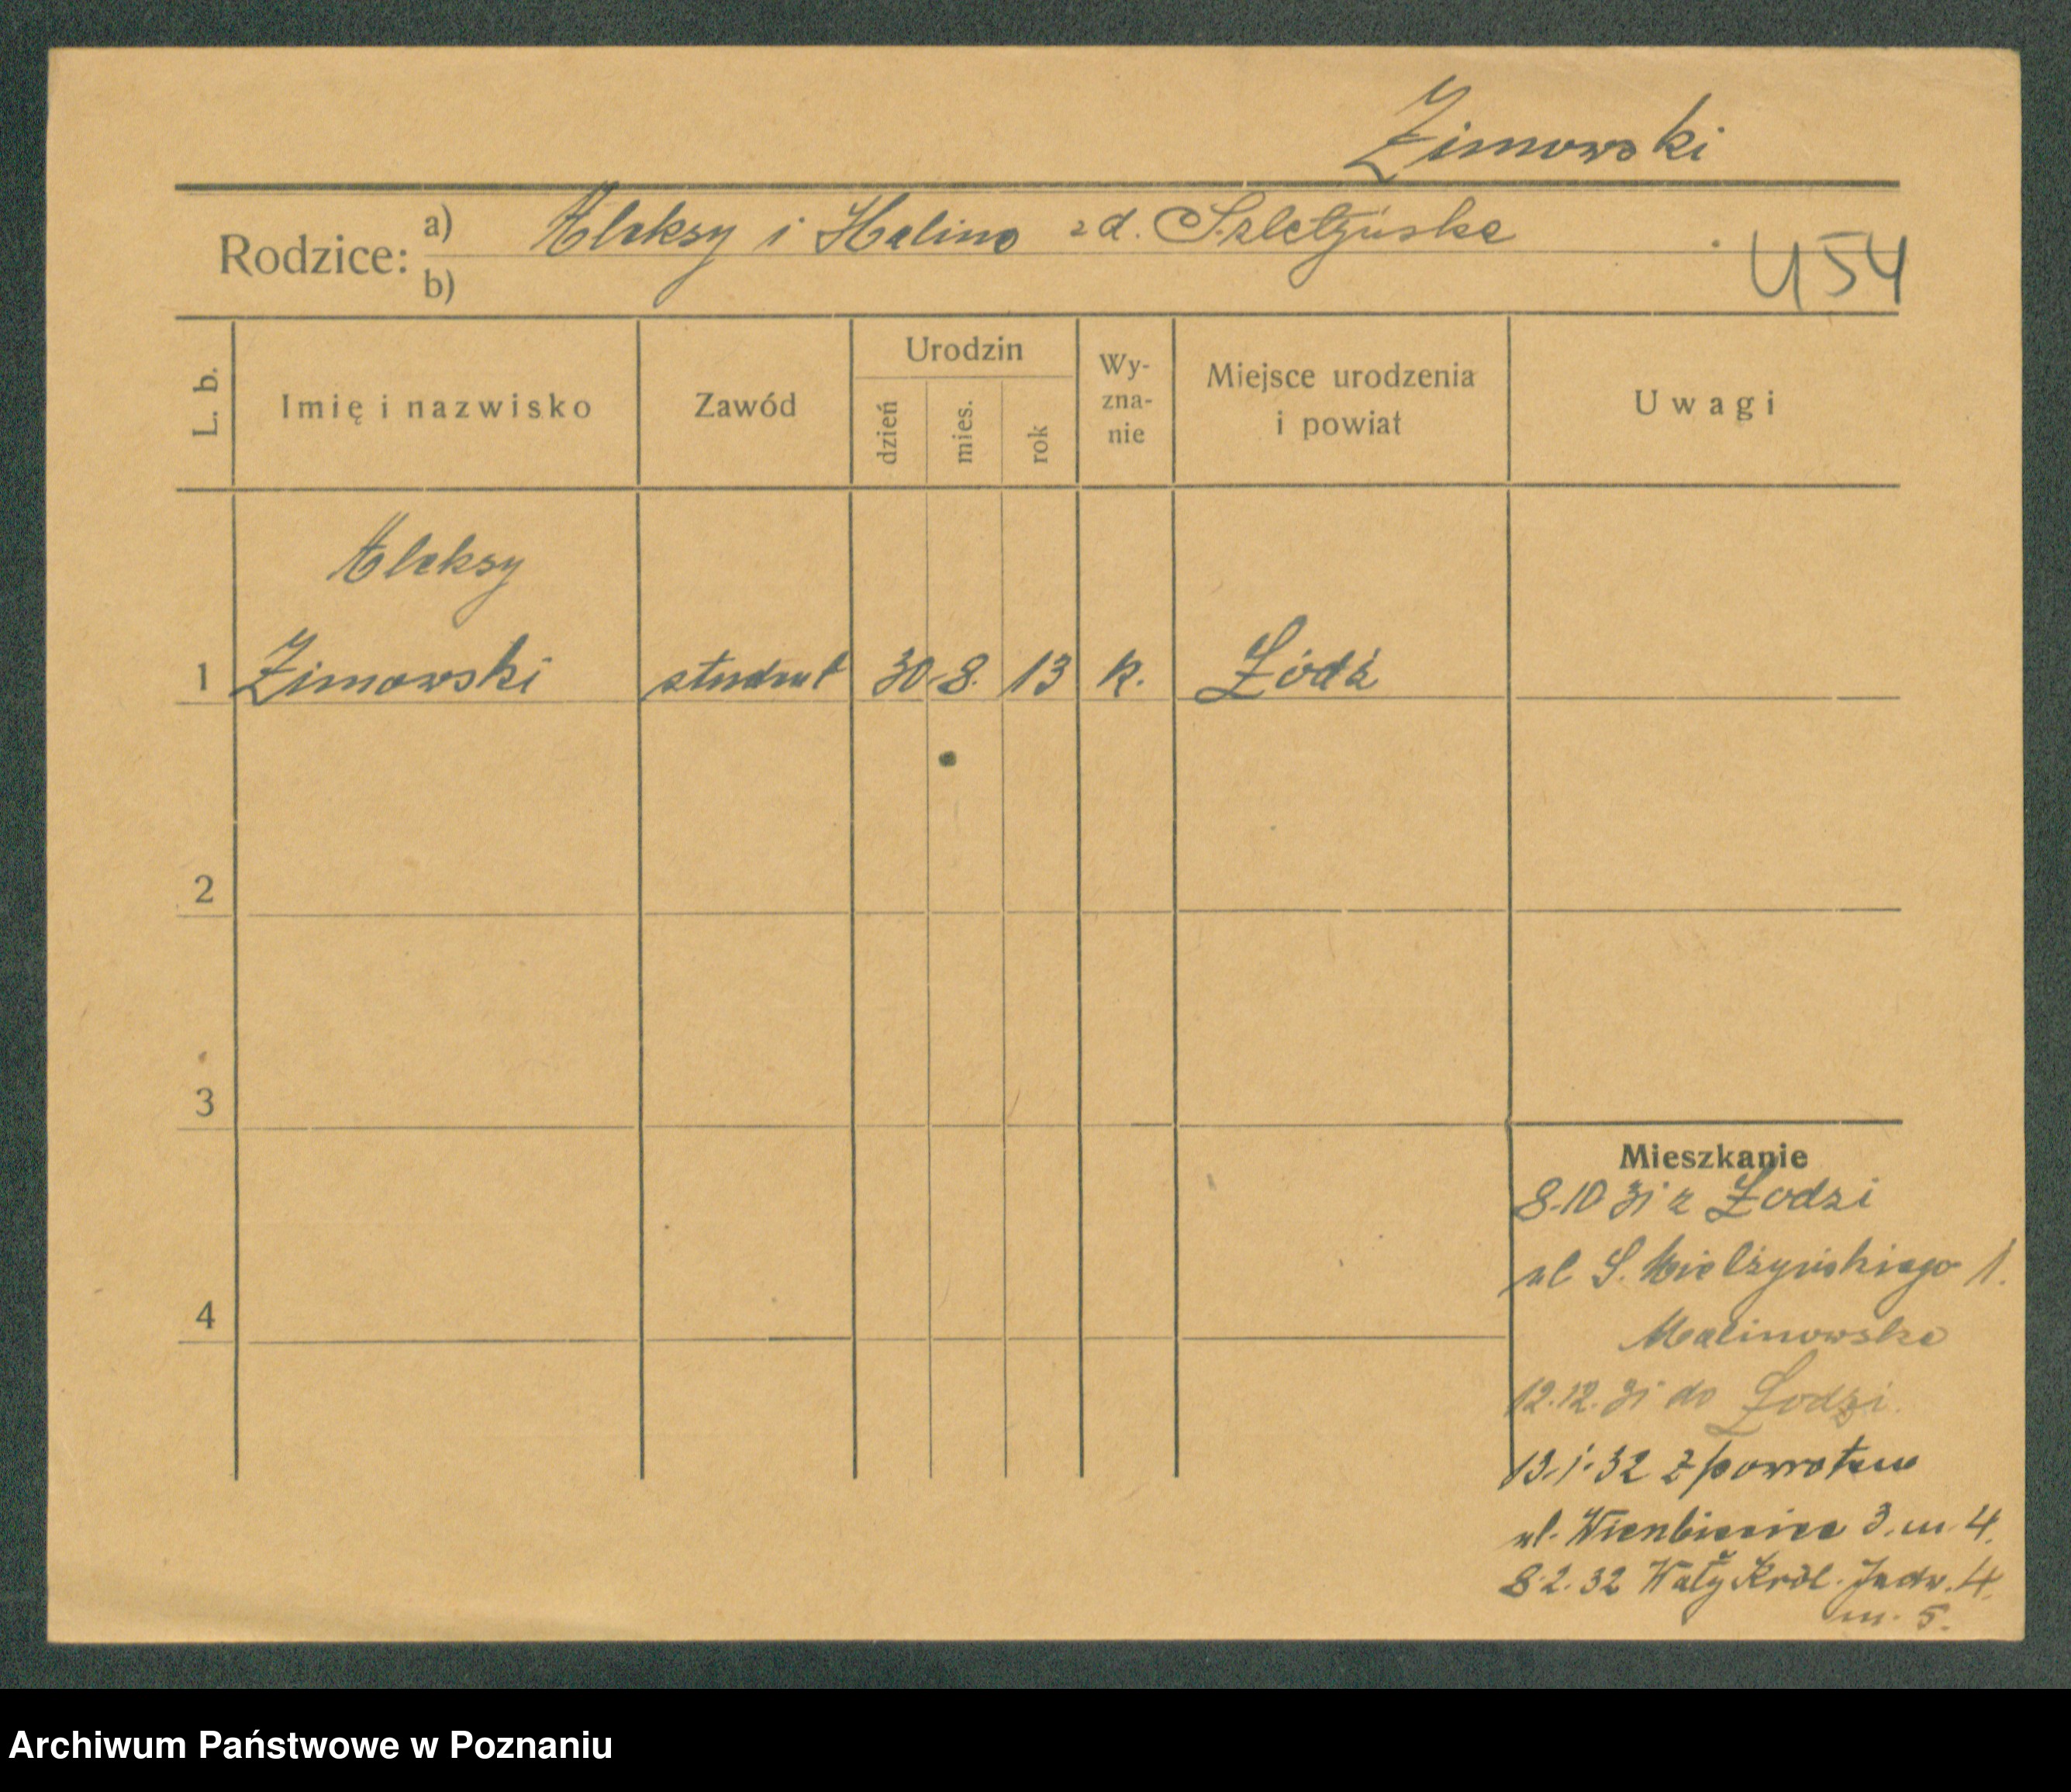 Zimowski
Rodzice: a) Aleksy i Halina zd.
b)
454
L. b.
Imię i nazwisko
Zawód
Urodzin
dzień
mies.
rok
Wy-
zna-
nie
Miejsce urodzenia
i powiat
Uwagi
Aleksy
1 Zimowski student 30. 8. 13 k. Łódź
2
3
4
Mieszkanie
8.10 31 z Łodzi
ul S. Mielżyńskiego 1.
Malinowska
12.12. 31 do Łodzi.
13.1.32 z powrotem
ul. 3. m 4.
8.2.32 Wały Król. Jadw. 4
m. 5.
Archiwum Państwowe w Poznaniu